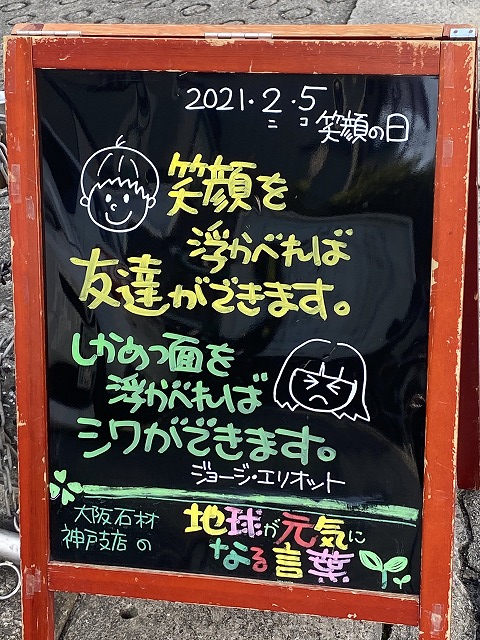 2021・2・5
ニコ笑顔の日
笑顔を
浮かべれば
友達ができます。
しかめっ面を
浮かべれば
シワができます。
ジョージ・エリオット
大阪石材
神戸支店の
地球が元気に
なる言葉